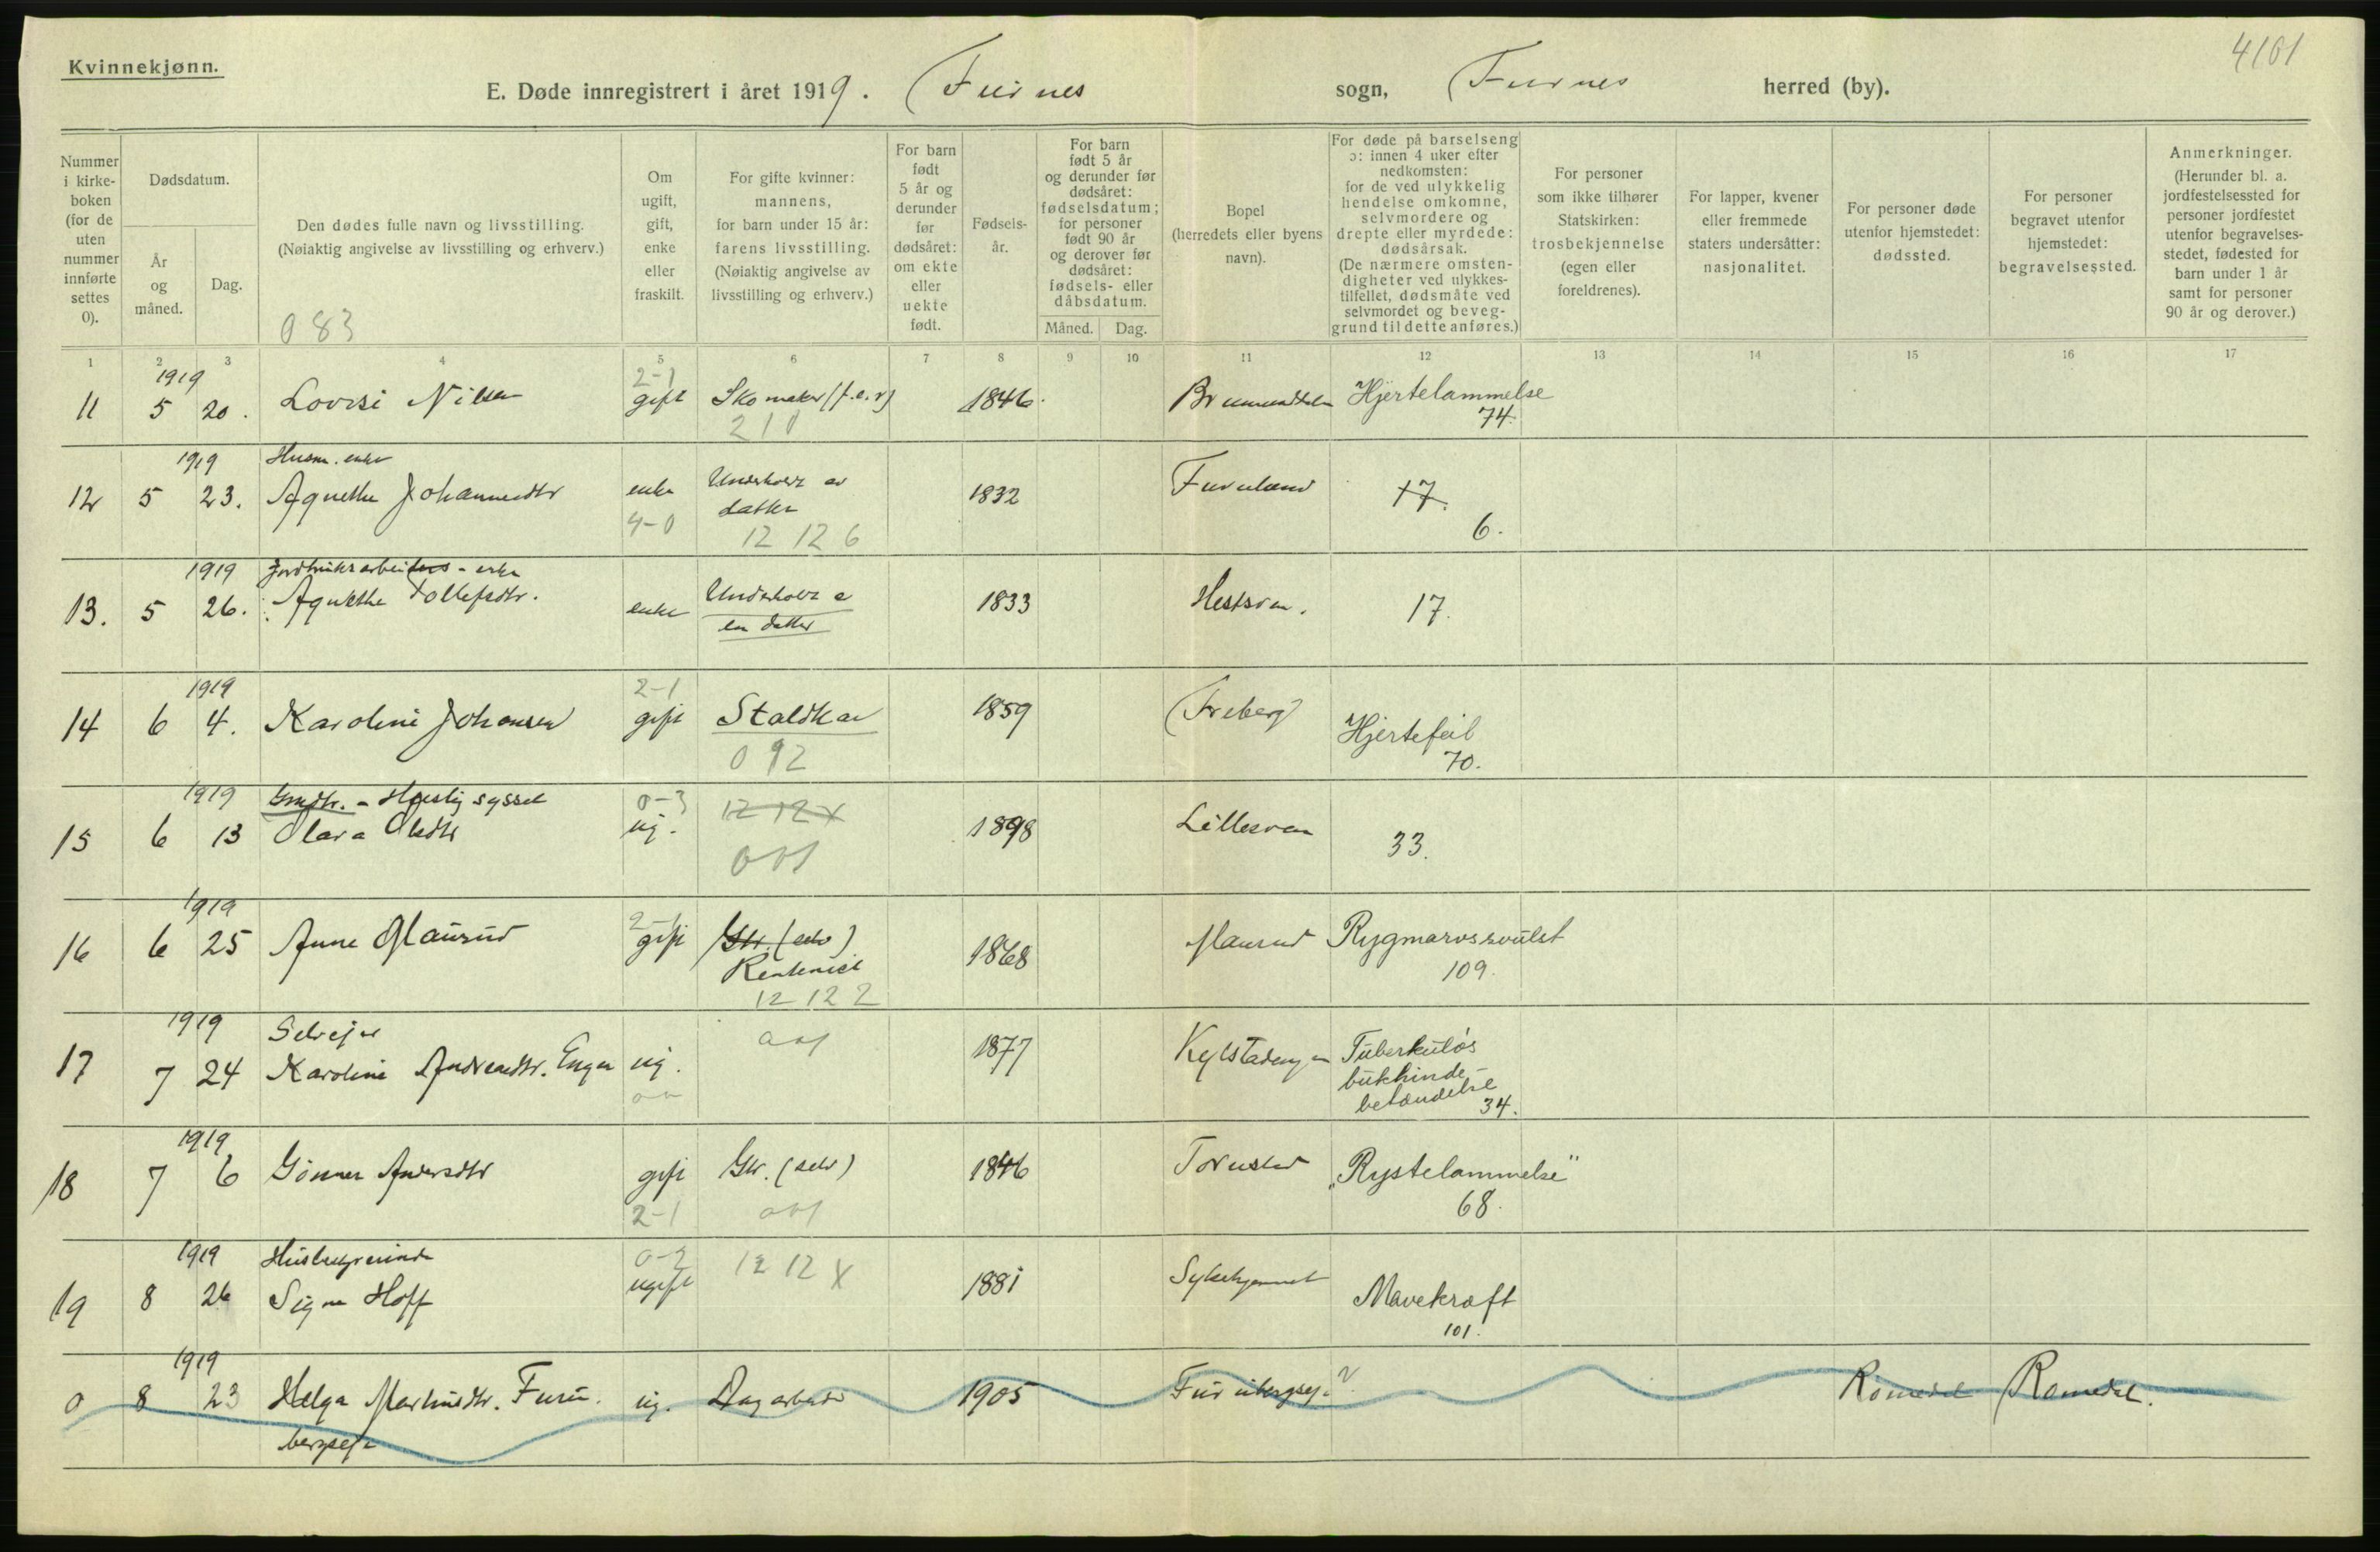 4101
Kvinnekjønn.
E. Døde innregistrert i året 1919. Furnes sogn, Furnes herred (by).
Nummer i kirke-boken (for de uten nummer innførte settes 0).
Dødsdatum.
År og måned.
Dag.
Den dødes fulle navn og livsstilling.
(Nøiaktig angivelse av livsstilling og erhverv.)
083
Om ugift, gift, enke eller fraskilt.
For gifte kvinner: mannens, for barn under 15 år: farens livsstilling. (Nøiaktig angivelse av livsstilling og erhverv.)
For barn født 5 år og derunder før dødsåret: om ekte eller uekte født.
Fødsels-år.
For barn født 5 år og derunder før dødsåret: fødselsdatum; for personer født 90 år og derover før dødsåret: fødsels- eller dåbsdatum.
Måned. Dag.
Bopel (herredets eller byens navn).
For døde på barselseng ɔ: innen 4 uker efter nedkomsten: for de ved ulykkelig hendelse omkomne, selvmordere og drepte eller myrdede: dødsårsak. (De nærmere omsten-digheter ved ulykkes-tilfellet, dødsmåte ved selvmordet og beveg-grund til dette anføres.)
For personer som ikke tilhører Statskirken: trosbekjennelse (egen eller foreldrenes).
For lapper, kvener eller fremmede staters undersåtter: nasjonalitet.
For personer døde utenfor hjemstedet: dødssted.
For personer begravet utenfor hjemstedet: begravelsessted.
Anmerkninger. (Herunder bl. a. jordfestelsessted for personer jordfestet utenfor begravelses-stedet, fødested for barn under 1 år samt for personer 90 år og derover.)
1 2 3 4 5 6 7 8 9 10 11 12 13 14 15 16 17
1919 2-1
11 5 20. Lovise Nilsen gift Skomaker (f.e.r) 1846. Brumunddalen Hjertelammelse
210 74.
1919 Husm. enke
12 5 23. Agnethe Johannesdtr enke Underholdt av datter 1832 Furuland 17.
4-0 12 12 6 6.
1919 Jordbruksarbeiders - enke
13. 5 26. Agnethe Tollefsdtr. enke Underholdt a en datter 1833 Hestsven. 17.
1919 2-1
14 6 4. Karoline Johansen gift Staldkar 1859 Freberg Hjertefeil
092 70.
1919 Grdtr. - Huslig syssel 0-3 12 12 X
15 6 13 Olava Olsdtr ug. 1898 Lillesven 33.
001
1919 2-1
16 6 25 Anne Maurud gift Gbr. (selv) 1868 Maurud Rygmarvssvulst
Rentenist 109.
12 12 2
1919 Selvejer 001
17 7 24 Karoline Andreasdtr. Engen ug. 1877 Kylstadengen Tuberkuløs
bukhinde-
betændelse
34.
1919
18 7 6 Gönner Andersdtr gift Gbr. (selv) 1846 Tornstad „Rystelammelse"
2-1 001 68.
1919 Husbestyrerinde 0-2 12 12 X
19 8 26 Signe Hoff ugift 1881 Sykehjemmet Mavekræft
101.
1919
0 8 23 Helga Martinsdtr. Furu- ug. Dagarbeider 1905 Furubergseje? Romedal Romedal.
bergseje